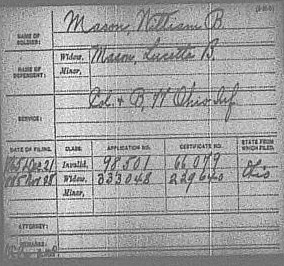 NAME OF SOLDIER: Mason, William B.
NAME OF DEPENDENT: Widow, Mason, Lucetta B.
Minor,
SERVICE: Co. & B, 77 Ohio Inf.
DATE OF FILING. CLASS. APPLICATION NO. CERTIFICATE NO. STATE FROM WHICH FILED.
1865 Dec 21 Invalid, 98.501 66.079
Nov 28 Widow, 333048 229640 Ohio
Minor,
ATTORNEY:
REMARKS: